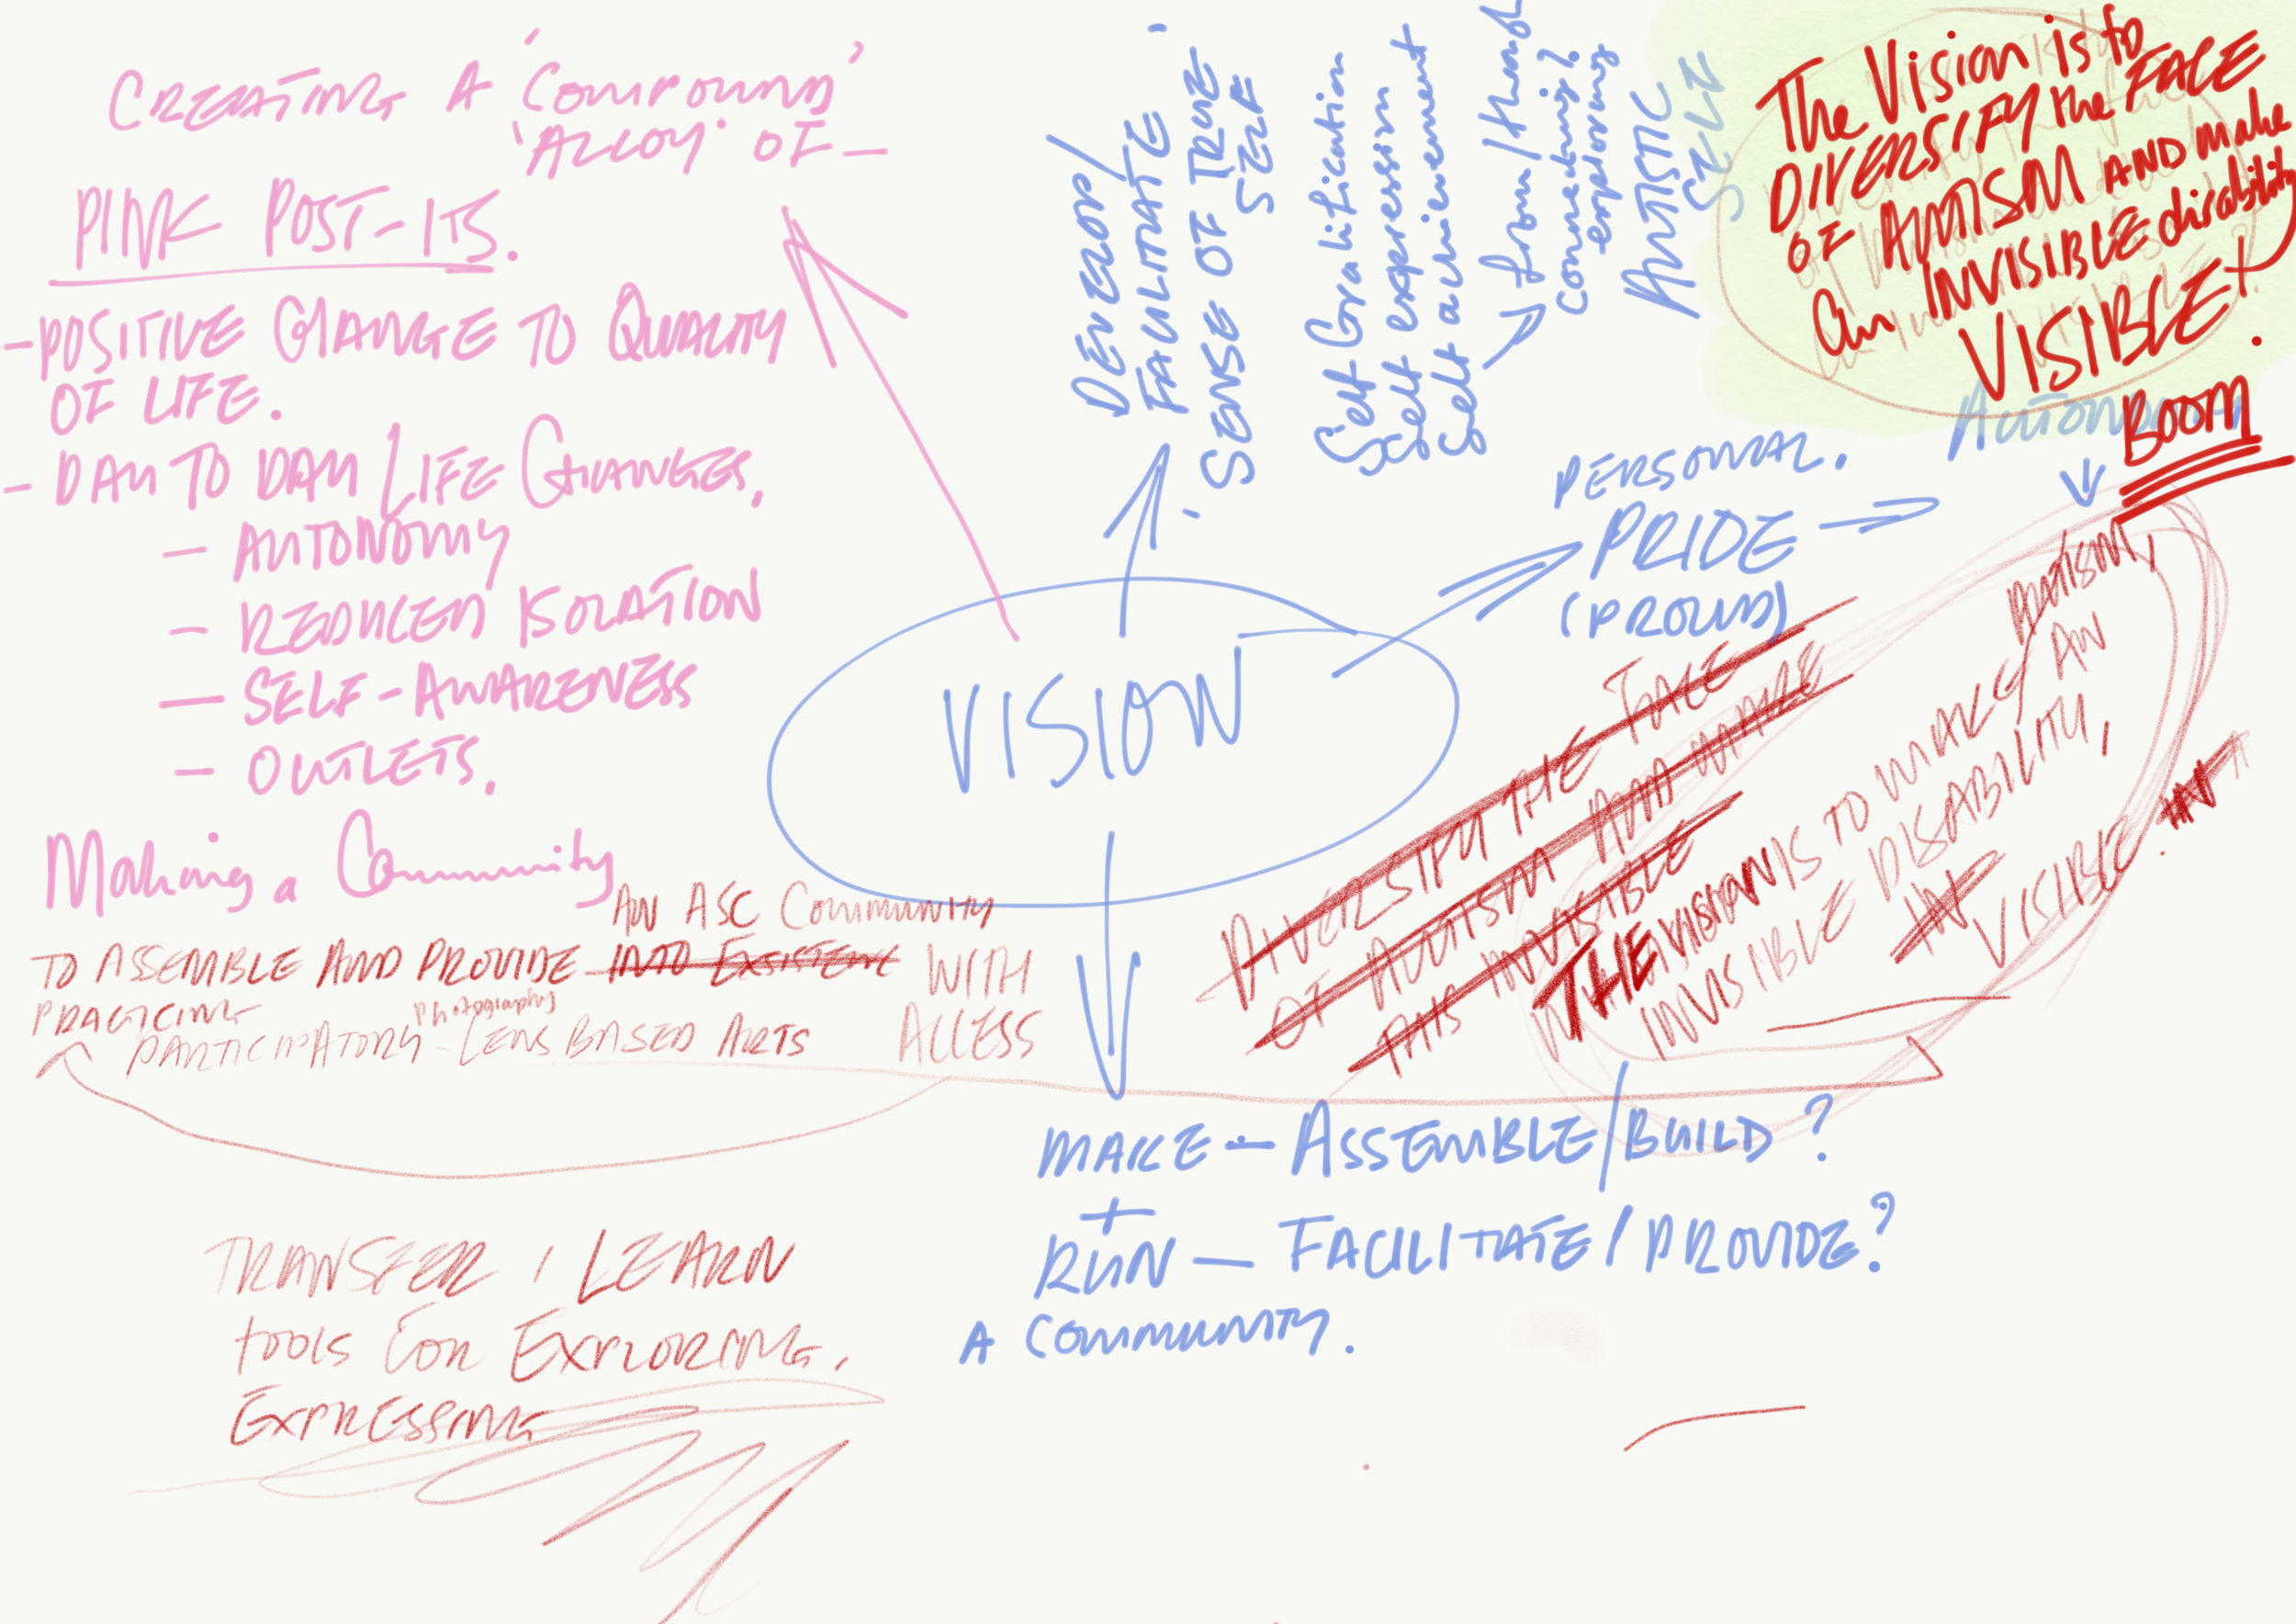 CREATING A 'COMPOUND'
'ALLOY' OF —
PINK POST-ITS.
- POSITIVE CHANGE TO QUALITY
OF LIFE.
- DAY TO DAY LIFE CHANGES.
- AUTONOMY
- REDUCED ISOLATION
- SELF-AWARENESS
- OUTLETS.
Making a Community
AN ASC COMMUNITY
TO ASSEMBLE AND PROVIDE INTO EXSISTENCE WITH
PRACTICING photography ACCESS
PARTICIPATORY - LENS BASED ARTS
TRANSFER / LEARN
tools FOR EXPLORING.
EXPRESSING
VISION
DEVELOP/
FACILITATE
SENSE OF TRUE
SELF
Self Gratification
Self expression
Self achievement
from/through
connecting/
exploring
AUTISTIC
SELF
PERSONAL.
PRIDE
(PROUD)
The Vision is to
DIVERSIFY the FACE
OF AUTISM AND make
an INVISIBLE disability
VISIBLE.
BOOM
DIVERSIFY THE FACE
OF AUTISM AND MAKE
THIS INVISIBLE
AUTISM,
THE VISION IS TO MAKE AN
INVISIBLE DISABILITY,
IN VISIBLE.
MAKE — ASSEMBLE/BUILD?
+
RUN — FACILITATE/PROVIDE?
A COMMUNITY.